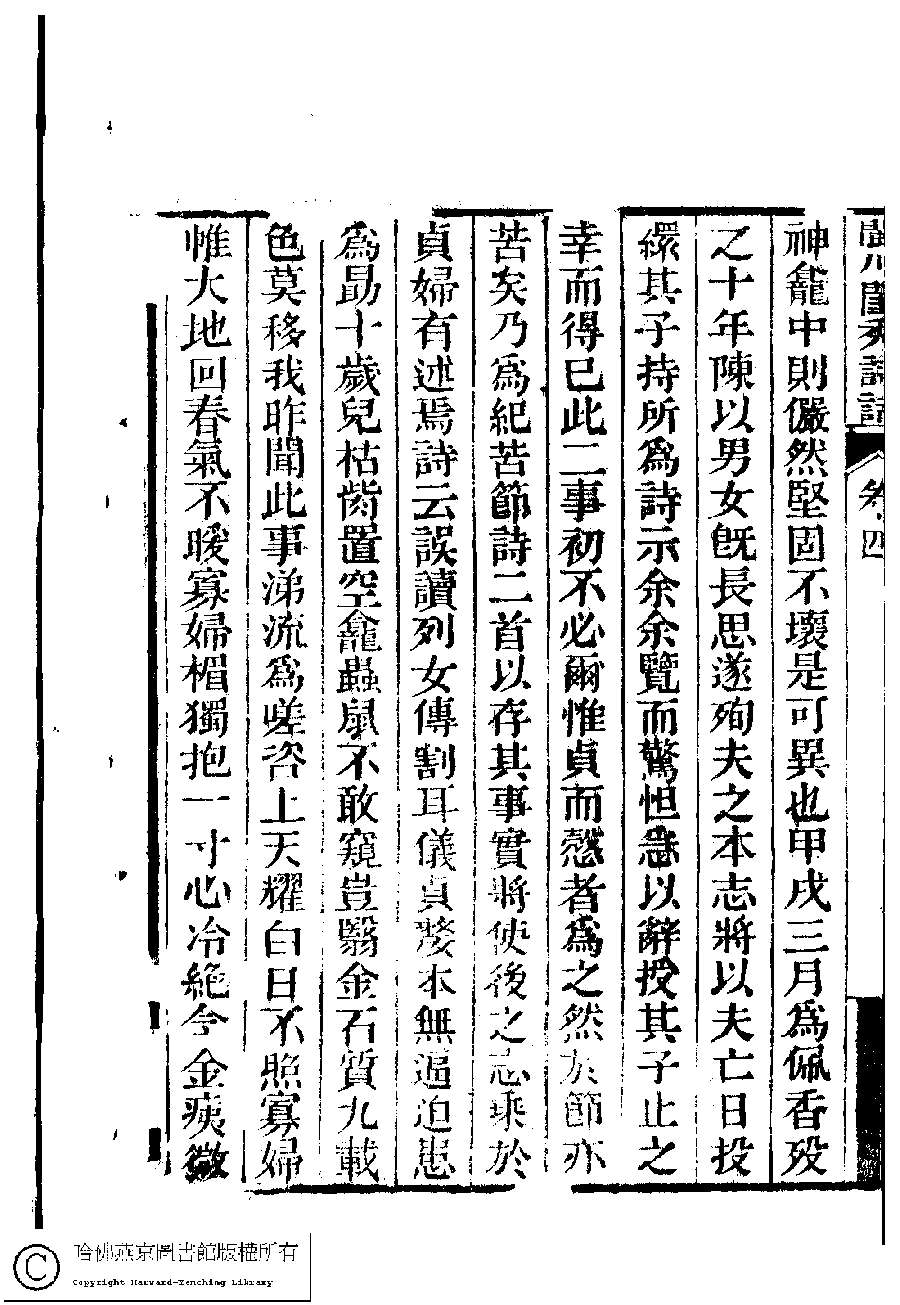 閩川閨秀詩話 卷四
神龕中則儼然堅固不壞是可異也甲戌三月為佩香歿
之十年陳以男女既長思遂殉夫之本志將以夫亡日投
繯其子持所為詩示余余覽而驚怛急以辭授其子止之
幸而得已此二事初不必爾惟貞而愨者為之然於節亦
苦矣乃為紀苦節詩二首以存其事實將使後之志乘於
貞婦有述焉詩云誤讀列女傳割耳儀貞嫠本無逼迫患
為勗十歲兒枯胔置空龕蟲鼠不敢窺豈翳金石質九載
色莫移我昨聞此事涕流為嗟咨上天耀白日不照寡婦
帷大地回春氣不暖寡婦楣獨抱一寸心冷絕令金痍微
哈佛燕京圖書館版權所有
Copyright Harvard-Yenching Library